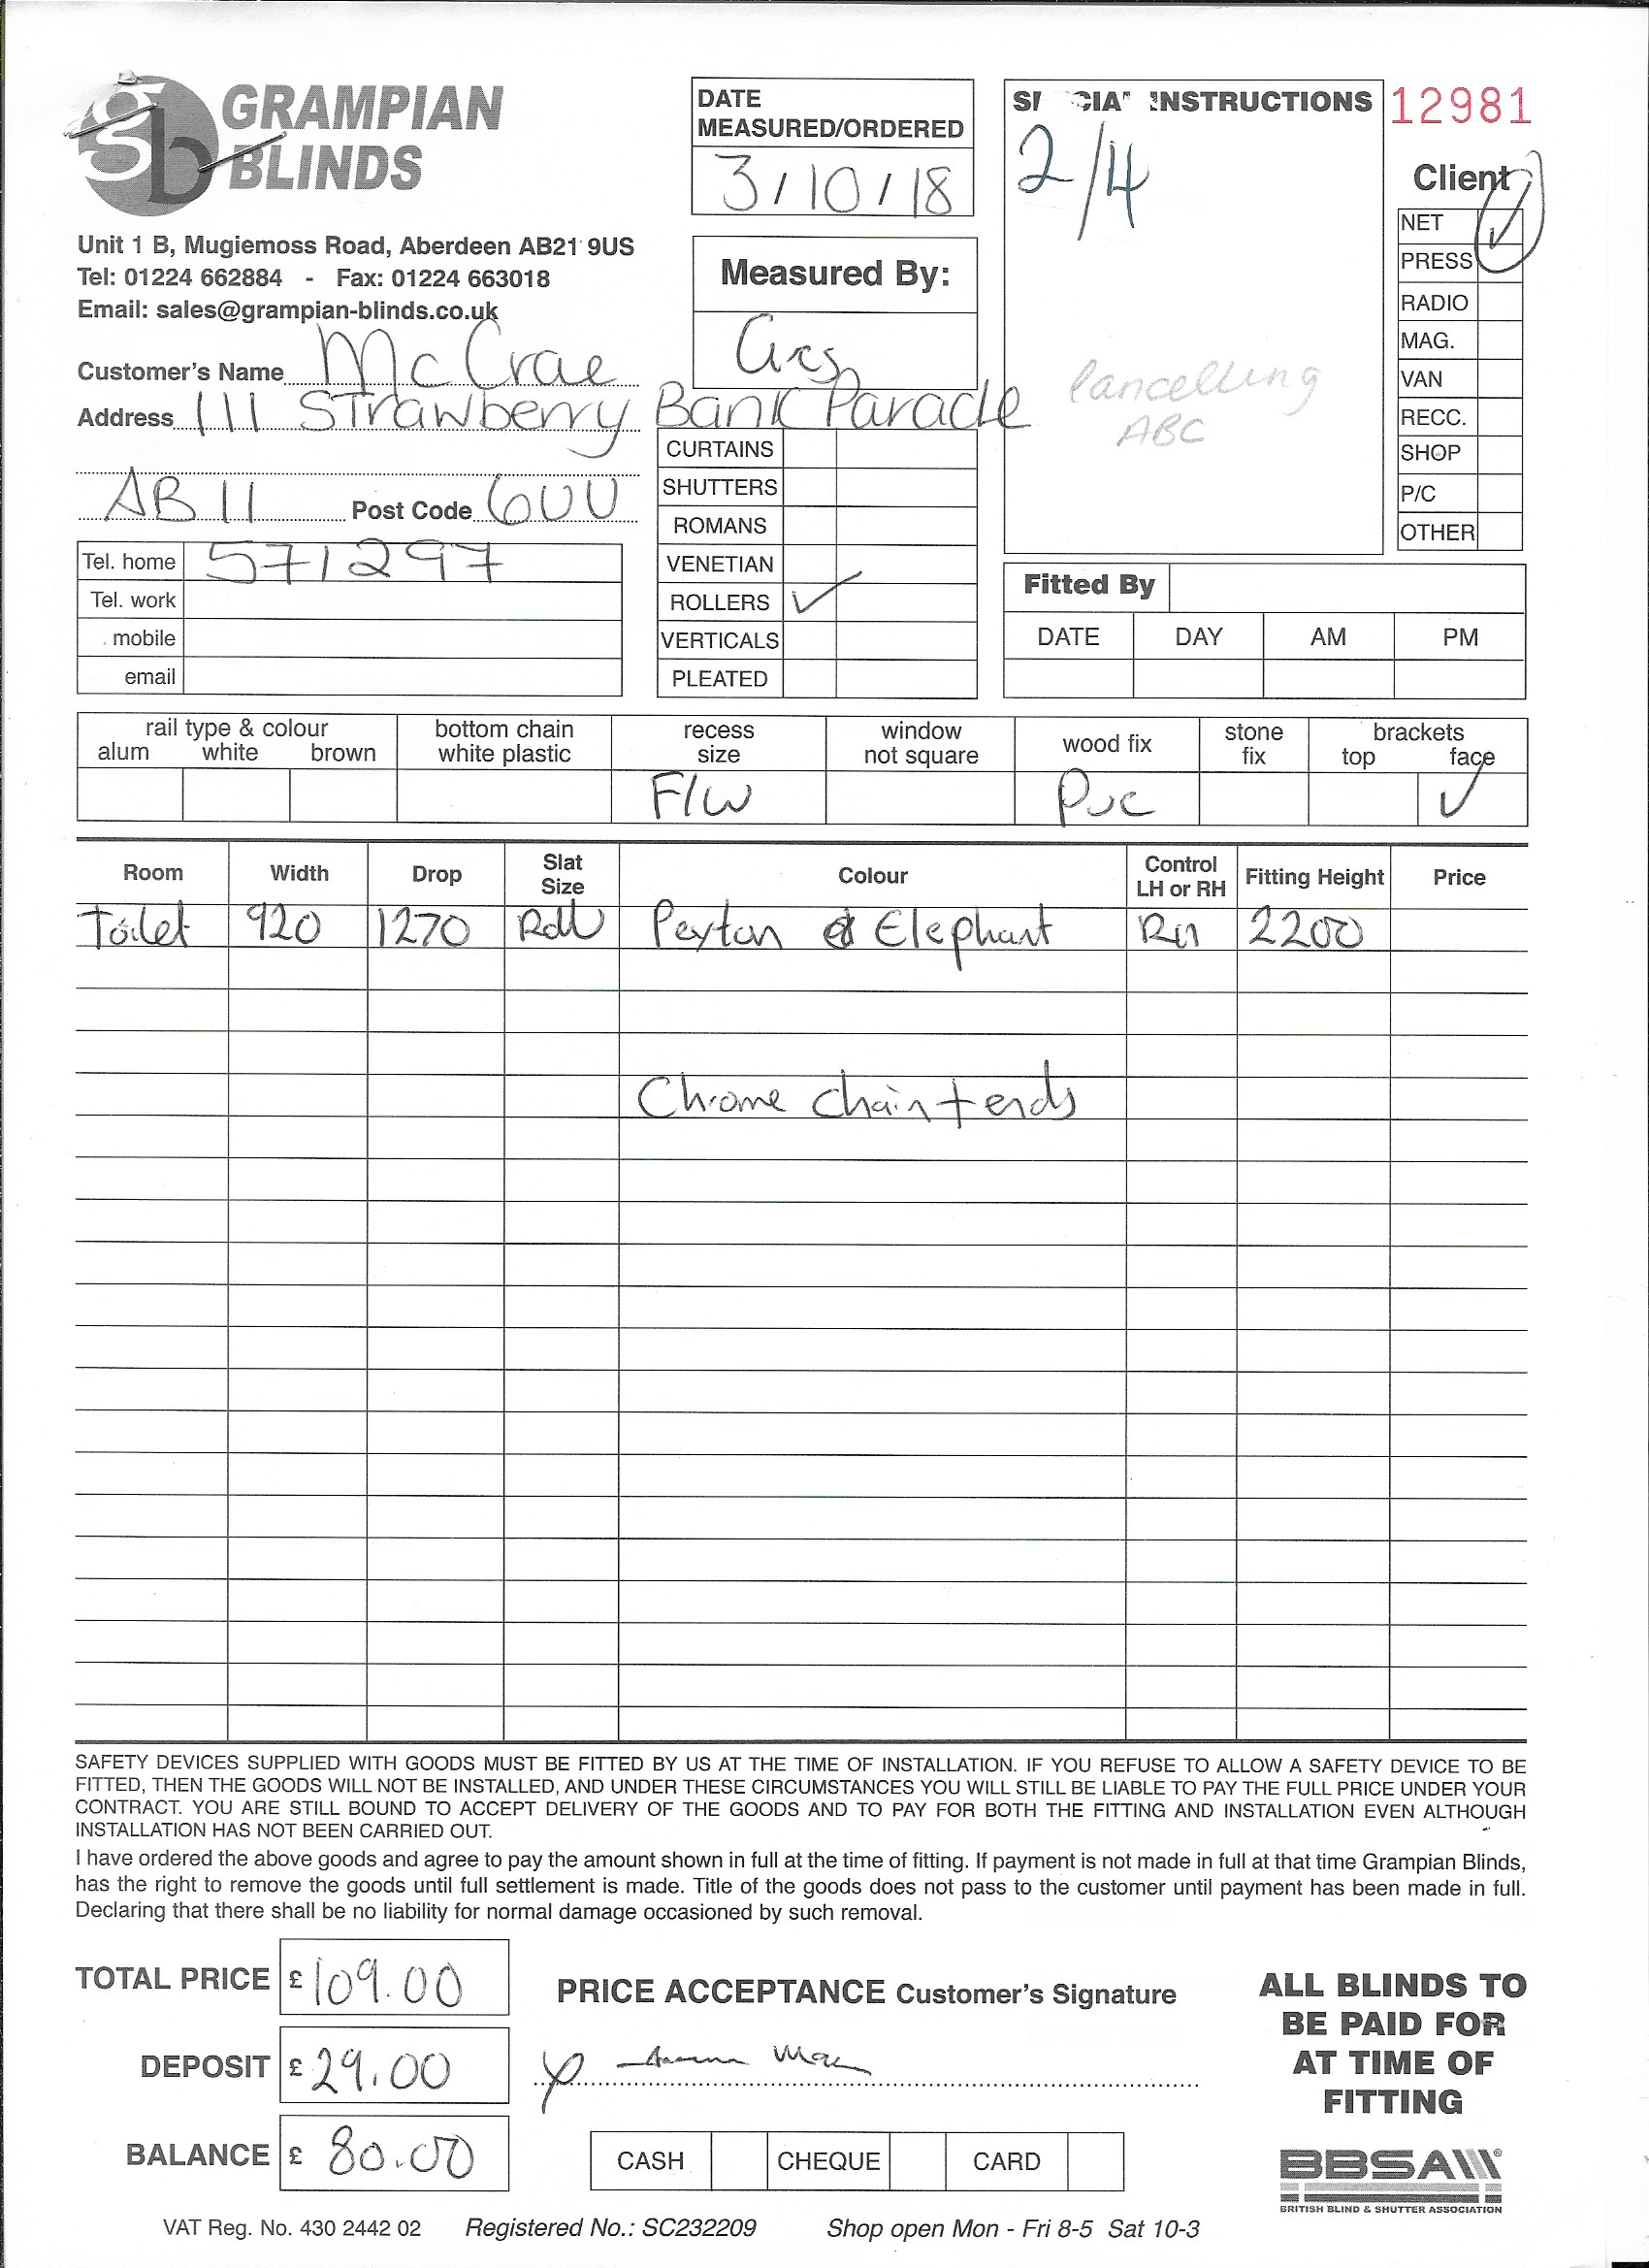 gb GRAMPIAN
BLINDS
Unit 1 B, Mugiemoss Road, Aberdeen AB21 9US
Tel: 01224 662884 - Fax: 01224 663018
Email: sales@grampian-blinds.co.uk
DATE
MEASURED/ORDERED
3/10/18
Measured By:
SPECIAL INSTRUCTIONS
2/4
Cancelling
ABC
12981
Client
NET ✓
PRESS
RADIO
MAG.
VAN
RECC.
SHOP
P/C
OTHER
Customer's Name McCrae
Address 111 Strawberry Bank Parade
AB11 Post Code 6UU
Tel. home 571297
Tel. work
mobile
email
CURTAINS
SHUTTERS
ROMANS
VENETIAN
ROLLERS ✓
VERTICALS
PLEATED
Fitted By
DATE DAY AM PM
rail type & colour
alum white brown
bottom chain
white plastic
recess
size
window
not square
wood fix
stone
fix
brackets
top face
F/W PVC ✓
Room Width Drop Slat Size Colour Control LH or RH Fitting Height Price
Toilet 920 1270 Roll Peyton Elephant RH 2200
Chrome chain + ends
SAFETY DEVICES SUPPLIED WITH GOODS MUST BE FITTED BY US AT THE TIME OF INSTALLATION. IF YOU REFUSE TO ALLOW A SAFETY DEVICE TO BE
FITTED, THEN THE GOODS WILL NOT BE INSTALLED, AND UNDER THESE CIRCUMSTANCES YOU WILL STILL BE LIABLE TO PAY THE FULL PRICE UNDER YOUR
CONTRACT. YOU ARE STILL BOUND TO ACCEPT DELIVERY OF THE GOODS AND TO PAY FOR BOTH THE FITTING AND INSTALLATION EVEN ALTHOUGH
INSTALLATION HAS NOT BEEN CARRIED OUT.
I have ordered the above goods and agree to pay the amount shown in full at the time of fitting. If payment is not made in full at that time Grampian Blinds,
has the right to remove the goods until full settlement is made. Title of the goods does not pass to the customer until payment has been made in full.
Declaring that there shall be no liability for normal damage occasioned by such removal.
TOTAL PRICE £109.00
DEPOSIT £29.00
BALANCE £80.00
PRICE ACCEPTANCE Customer's Signature
CASH CHEQUE CARD
ALL BLINDS TO
BE PAID FOR
AT TIME OF
FITTING
BBSA
BRITISH BLIND & SHUTTER ASSOCIATION
VAT Reg. No. 430 2442 02 Registered No.: SC232209 Shop open Mon - Fri 8-5 Sat 10-3